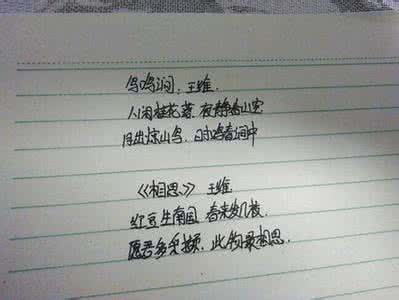 鸟鸣涧. 王维
人闲桂花落, 夜静春山空
月出惊山鸟, 时鸣春涧中
《相思》 王维
红豆生南国, 春来发几枝,
愿君多采撷, 此物最相思.